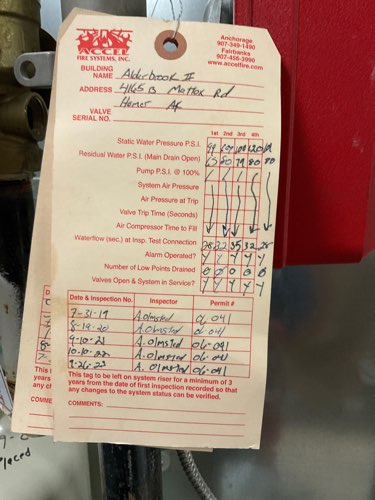 ACCEL
FIRE SYSTEMS, INC.
Anchorage
907-349-1490
Fairbanks
907-456-3990
www.accelfire.com
BUILDING NAME Alderbrook II
ADDRESS 4165 B Mattox Rd
Homer AK
VALVE SERIAL NO.
1st 2nd 3rd 4th
Static Water Pressure P.S.I. 100 120
Residual Water P.S.I. (Main Drain Open) 65 60 79 80 80
Pump P.S.I. @ 100%
System Air Pressure
Air Pressure at Trip
Valve Trip Time (Seconds)
Air Compressor Time to Fill
Waterflow (sec.) at Insp. Test Connection 28 32 35 32 28
Alarm Operated? Y Y Y Y Y
Number of Low Points Drained 0 0 0 0 0
Valves Open & System in Service? Y Y Y Y Y
Date & Inspection No. Inspector Permit #
7-31-19 A.Olmsted 06-041
8-19-20 A.Olmsted 06-041
9-10-21 A.Olmsted 06-041
10-10-22 A.Olmsted 06-041
9-26-23 A.Olmsted 06-041
This tag to be left on system riser for a minimum of 3
years from the date of first inspection recorded so that
any changes to the system status can be verified.
COMMENTS: